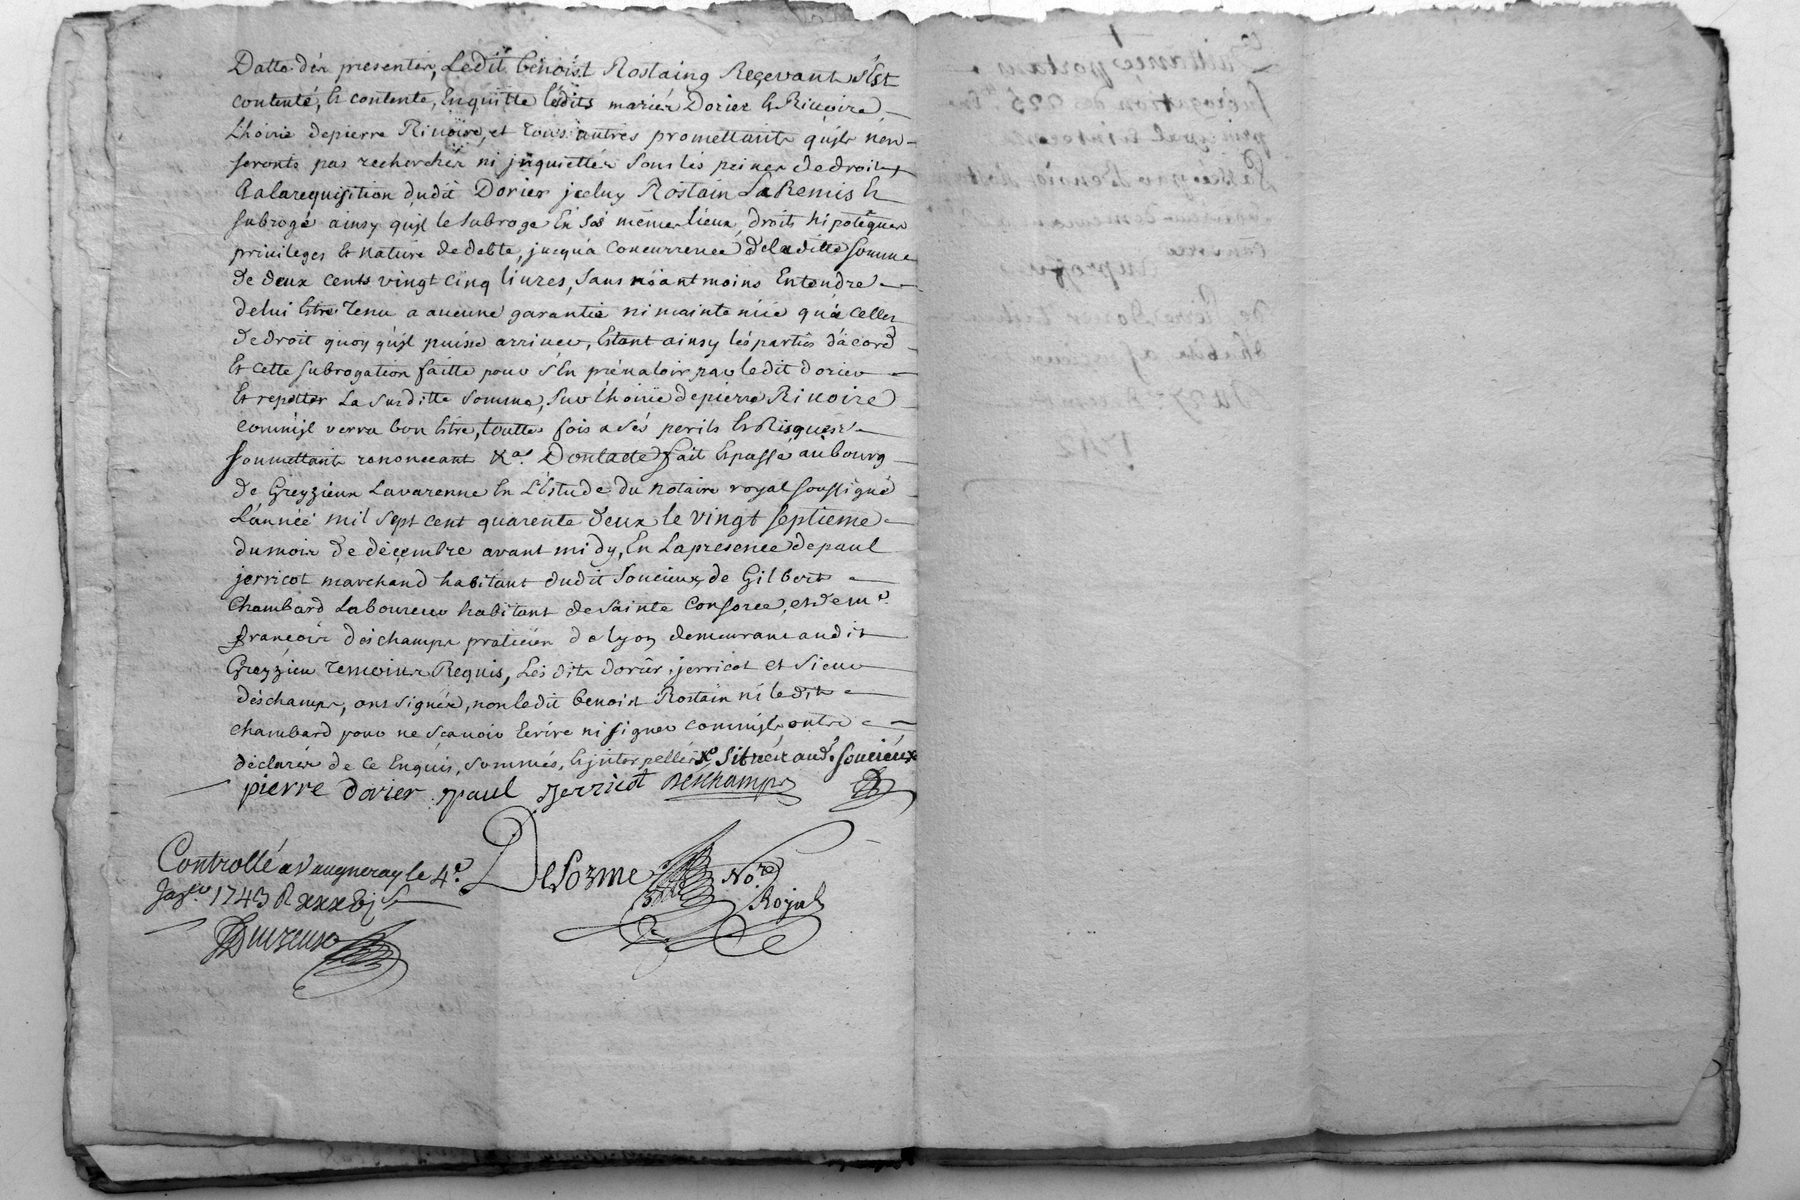 Datte des presentes, Ledit benoist Rostaing Reçevant s'Est
contenté, Et contente, Enquitte lésdits mariés Dorier Et Rivoire,
L'hoirie depierre Rivoire, et tous autres promettants qu'jls n'en
seronts pas recherchés ni jnquiettés sous lés peines dedroit
Et alarequisition dudit Dorier jceluy Rostain La Remis Et
subrogé ainsy qu'jl le subroge En sés mêmes lieux, droits hipotêques
privileges Et nature dedebte, jusqu'a concurrence delæditte somme
de deux cents vingt cinq livres, sans néantmoins Entendre
delui Estre tenu a aucune garantie ni maintenüe qu'a celles
dedroit quoy qu'jl puisse arriver, Estant ainsy lésparties d'acord
Et cette subrogation faitte pour s'En prévaloir par ledit dorier
Et repetter La susditte somme, sur l'hoirie depierre Rivoire
comm'jl verra bon Estre, touttes fois a sés perils Et Risques
soumettants renonceant &a. Dontacte fait Et passé au bourg
de Greyzieux Lavarenne En L'Éstude du notaire royal soussigné
L'année mil sept cent quarente deux le vingt septieme
dumois de décembre avant midy, En Lapresence depaul
jerricot marchand habitant dudit soucieux, de Gilbert
Chambard Laboureur habitant de sainte Consorce, et de me.
françois déschamps praticien de lyon demeurant audit
Greyzieu temoins Requis, Lés dits dorier, jerricot et sieur
déschamps, ont signés, non ledit benoist Rostain ni ledit
chambard pour ne sçavoir Ecrire ni signer comm'jls ontre
déclarés de ce Enquis, sommés, Et jnterpellés sitnéét aud. soucieux
pierre dorier paul Jerricot Deschamps
Controllé a Vaugneray le 4e.
Janer 1743 R
Delorme Nore
Royal
1742